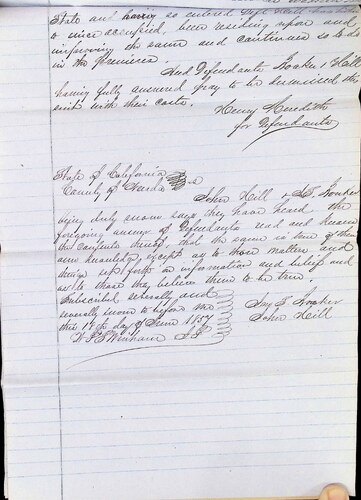 State and having so entered
to since occupied, been residing upon and
improving the same and continues so to do
in the premises.
And Defendants Hooker & Hill
having fully answered pray to be dismissed the
suit with their costs.
Henry Meredith
for Defendants
State of California
County of
John Hill
being duly sworn says they have heard the
foregoing answer of Defendants read and know
the contents thereof, that the same is true of their
own knowledge, except as to those matters and
things set forth on information and belief and
as to those they believe them to be true
Subscribed severally and
severally sworn to before me
this 19th day of June 1857
John Hill